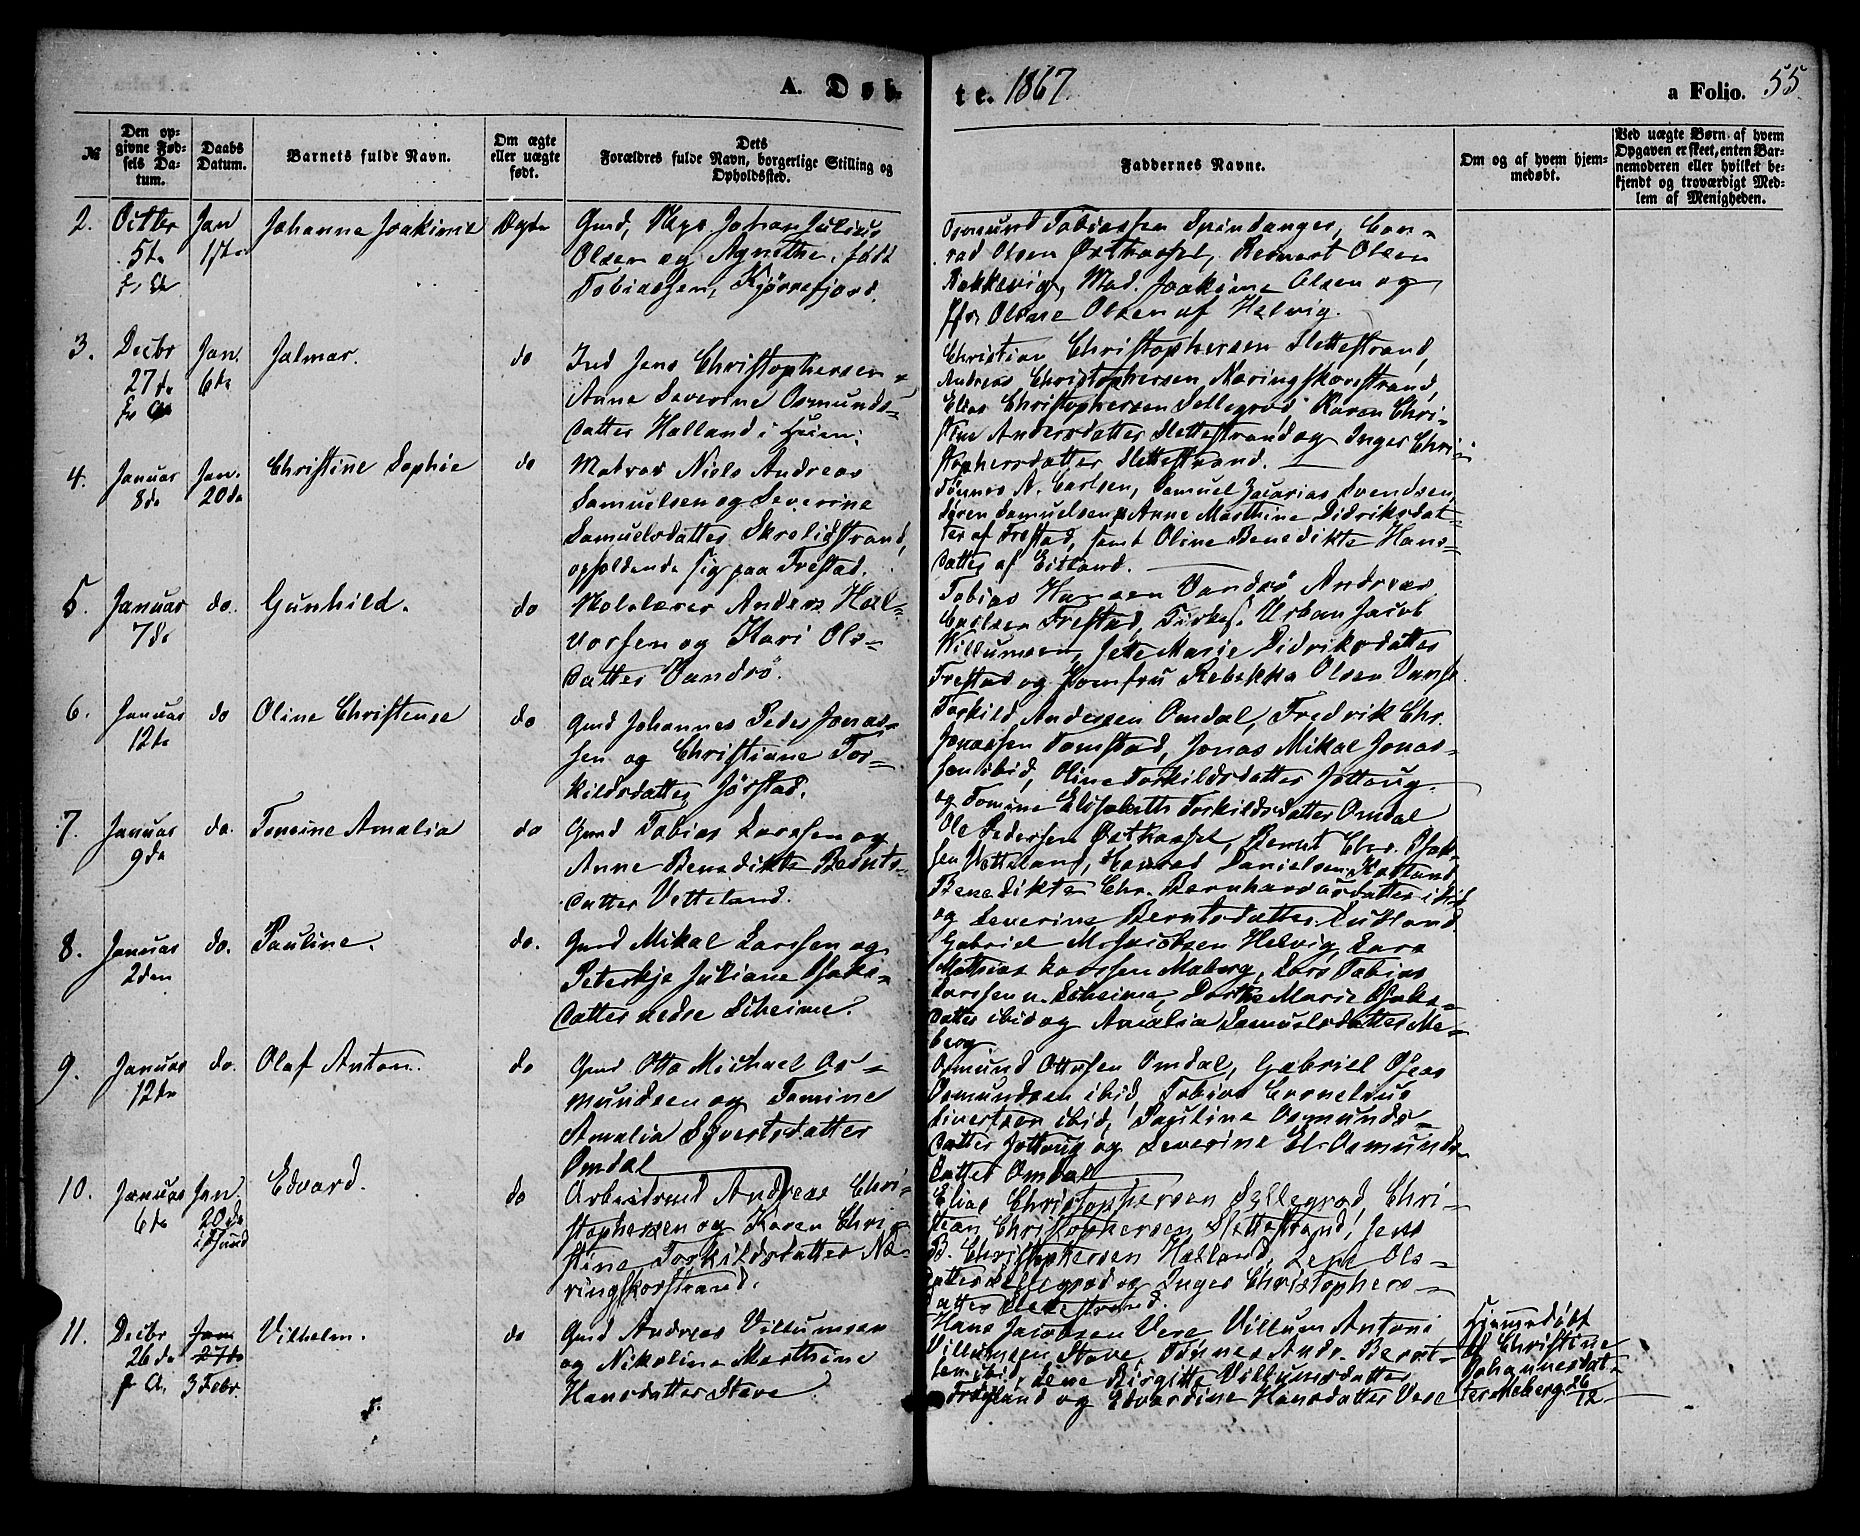 A. Døb-
te. 1867.
a Folio. 55
№
Den op-
givne Fød-
sels Da-
tum.
Daabs
Datum.
Barnets fulde Navn.
Om ægte
eller uægte
født.
Dets
Forældres fulde Navn, borgerlige Stilling og
Opholdssted.
Faddernes Navne.
Om og af hvem hjem-
medøbt.
Ved uægte Børn af hvem
Opgaven er skeet, enten Bar-
nemoderen eller hvilket be-
kjendt og troværdigt Med-
lem af Menigheden.
2.
Octbr
5te
f. A
Jan
1ste
Johanne Joakime
Ægte
Gmd, Johan Julius
Olsen og Agnethe, født
Tobiassen, Kjørrefjord.
Osmund Tobiassen Spindanger, Con-
rad Olsen Østhassel, Reinert Olsen
Rekkevig, Mad. Joakime Olsen og
Olsen af Helvig.
3.
Decbr
27de
f. A
Jan.
6te
Jalmar.
do
Ind Jens Christophersen
Anne Severine Osmunds-
datter Halland i
Christian Christophersen Slettestrand,
Andreas Christophersen Næringskorstrand,
Elias Christophersen Sellegrod Karen Chri-
stine Andersdatter Slettestrand og Inger Chri-
stophersdatter Slettestrand.
4.
Januar
8de
Jan.
20de
Christine Sophie
do
Matros Niels Andreas
Samuelsen og Severine
Samuelsdatter Skreligstrand,
opholdende sig paa Frestad.
Tønnes A. Carlsen, Samuel Zacarias Svendsen,
Søren Samuelsen, Anne Marthine Didriksdat-
ter af Frestad, samt Oline Benedikte Hans-
datter af Eitland.
5.
Januar
7de
do.
Gunhild.
do
Anders Hal-
vorsen og Kari Ols-
datter Vandsø.
Tobias Hansen Vandsø Andreas
Carlsen Frestad, Urban Jacob
Willumsen, Jette Marie Didriksdatter
Frestad og Jomfru Rebekka Olsen Vanse.
6.
Januar
12te
do
Oline Christense
do
Gmd Johannes Peder Jonas-
sen og Christiane Tor-
kildsdatter Jørstad.
Torkild Andersen Omdal, Fredrik Chr.
Jonassen Tomstad, Jonas Mikal Jonas-
sen ibid, Oline Torkildsdatter Jottoug
og Tomine Elisabeth Torkildsdatter Omdal
7.
Januar
9de
do.
Tomine Amalia
do
Gmd Tobias Larssen og
Anne Benedikte Bernts-
datter Vetteland.
Ole Pedersen Østhassel, Bernt Chr.
sen Vetteland, Danielsen
Benedikte Chr. Bernhardusdatter ibid
og Severine Berntsdatter
8.
Januar
2den
do.
Pauline.
do.
Gmd Mikal Larssen og
Peterkje Juliane Isaks-
datter nedre Skeime.
Gabriel M. Jacobsen Helvig, Lars
Mathias Larssen Meberg, Lars Tobias
Larssen n. Skeime, Dorthe Marie Isaks-
datter ibid og Amalia Samuelsdatter Me-
berg
9.
Januar
12te
do.
Olaf Anton.
do
Gmd Otto Michael Os-
mundsen og Tomine
Amalia Sivertsdatter
Omdal
Osmund Ottosen Omdal, Gabriel Oseas
Osmundsen ibid, Tobias Cornelius
Sivertsen ibid, Pauline Osmunds-
datter Jottoug og Severine El. Osmunds-
datter Omdal
10.
Januar
6te
Jan
20de
i Sund
Edvard.
do
Arbeidsmd Andreas Chri-
stophersen og Karen Chri-
stine Torkildsdatter Næ-
ringskorstrand.
Elias Christophersen Sellegrod, Chri-
stian Christophersen Slettestrand, Jens
B. Christophersen Halland, Lene Ols-
datter Sellegrod og Inger Christophers-
datter Slettestrand.
11.
Decbr
26de
f. A.
Jan
27de
3 Febr.
Vilhelm.
do
Gmd Andreas Villumsen
og Nikoline Marthine
Hansdatter Stave
Hans Jacobsen Vere Villum Antoni
Villumsen Stave, Tønnes Andr. Bernt-
sen ibid, Lene Birgitte Villumsdatter
og Edvardine Hansdatter Vere
Hjemmedøbt
af Christine
Johannesdat-
ter Meberg 26/12